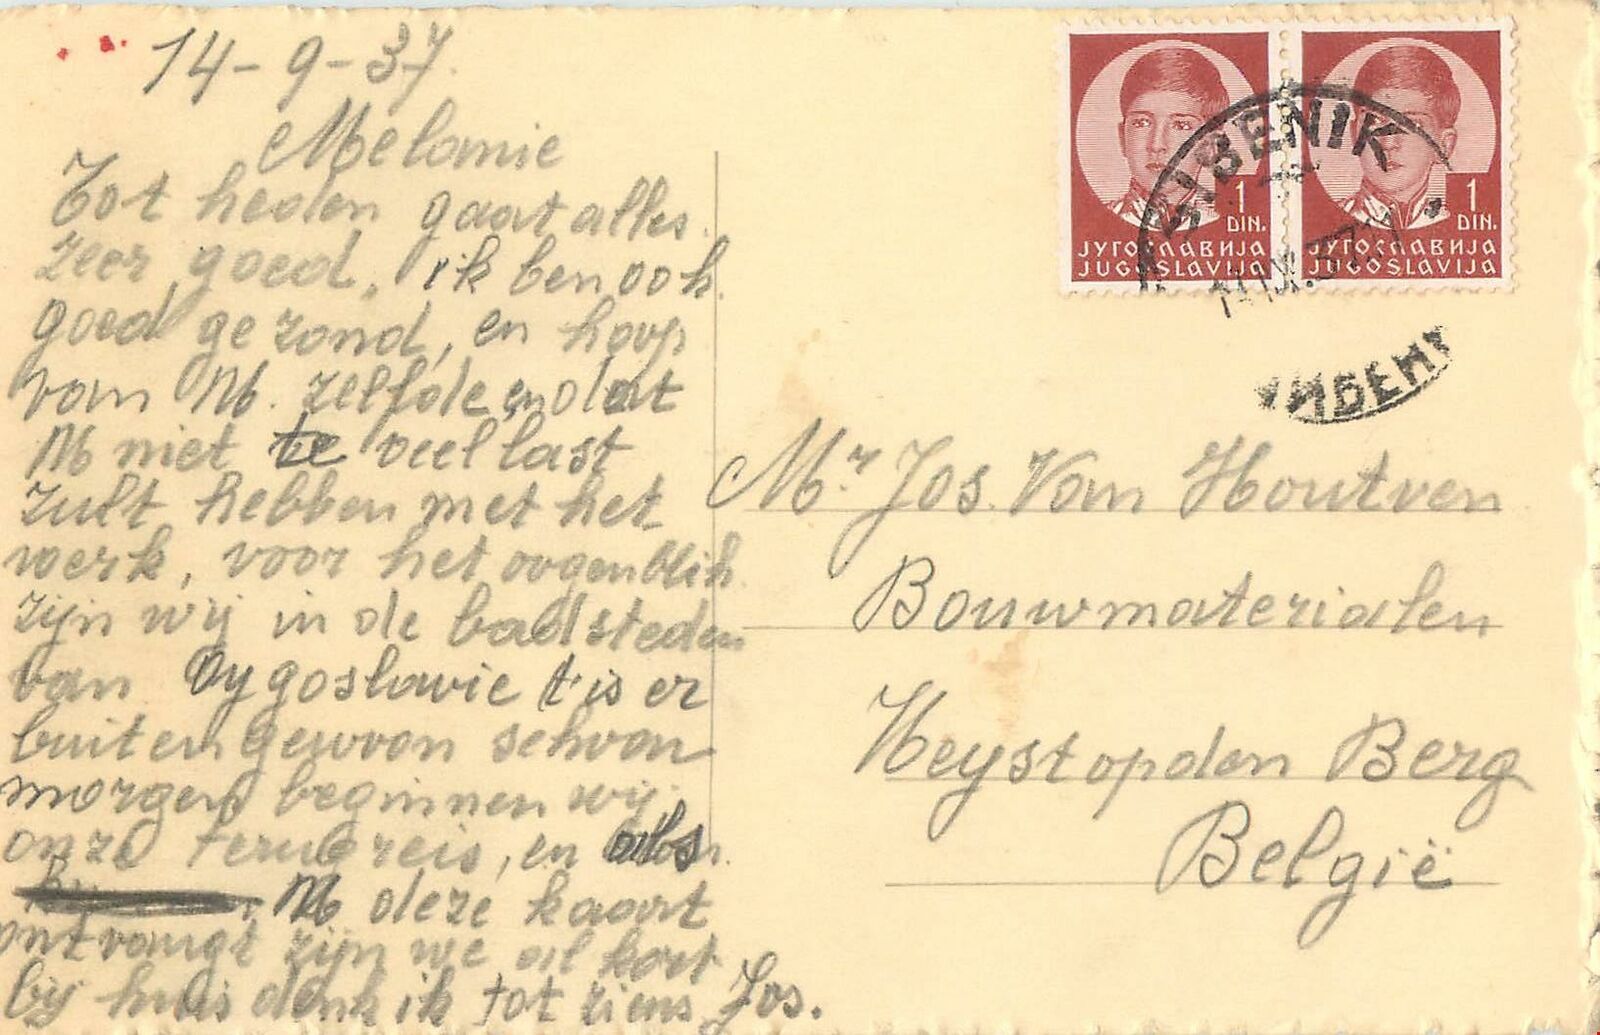 14-9-37.
Melanie
Tot heden gaat alles
zeer goed, ik ben ook
goed gezond, en hoop
van M. zelfde en dat
M niet te veel last
zult hebben met het
werk, voor het oogenblik
zijn wij in de badsteden
van Yygoslavie t'is er
buitengewoon schoon
morgen beginnen wij
onze terugreis, en als
M deze kaart
ontvangt zijn we al kort
bij huis denk ik tot ziens Jos.
1 DIN.
ЈУГОСЛАВИЈА
JUGOSLAVIJA
1 DIN.
ЈУГОСЛАВИЈА
JUGOSLAVIJA
ŠIBENIK
Mr. Jos. Van Houtven
Bouwmaterialen
Heyst op den Berg
België